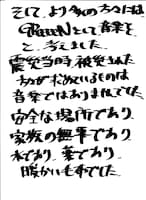 そして、より多の方々には
GReeeeNとして音楽を
と、考えました。
震災当時、被災された
方が求めているものは
音楽ではありませんでした
安全な場所であり
家族の無事であり
水であり、薬であり
暖かい毛布でした。